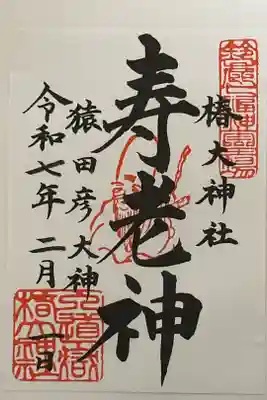 椿大神社
寿老神
猿田彦大神
令和七年 二月 一日